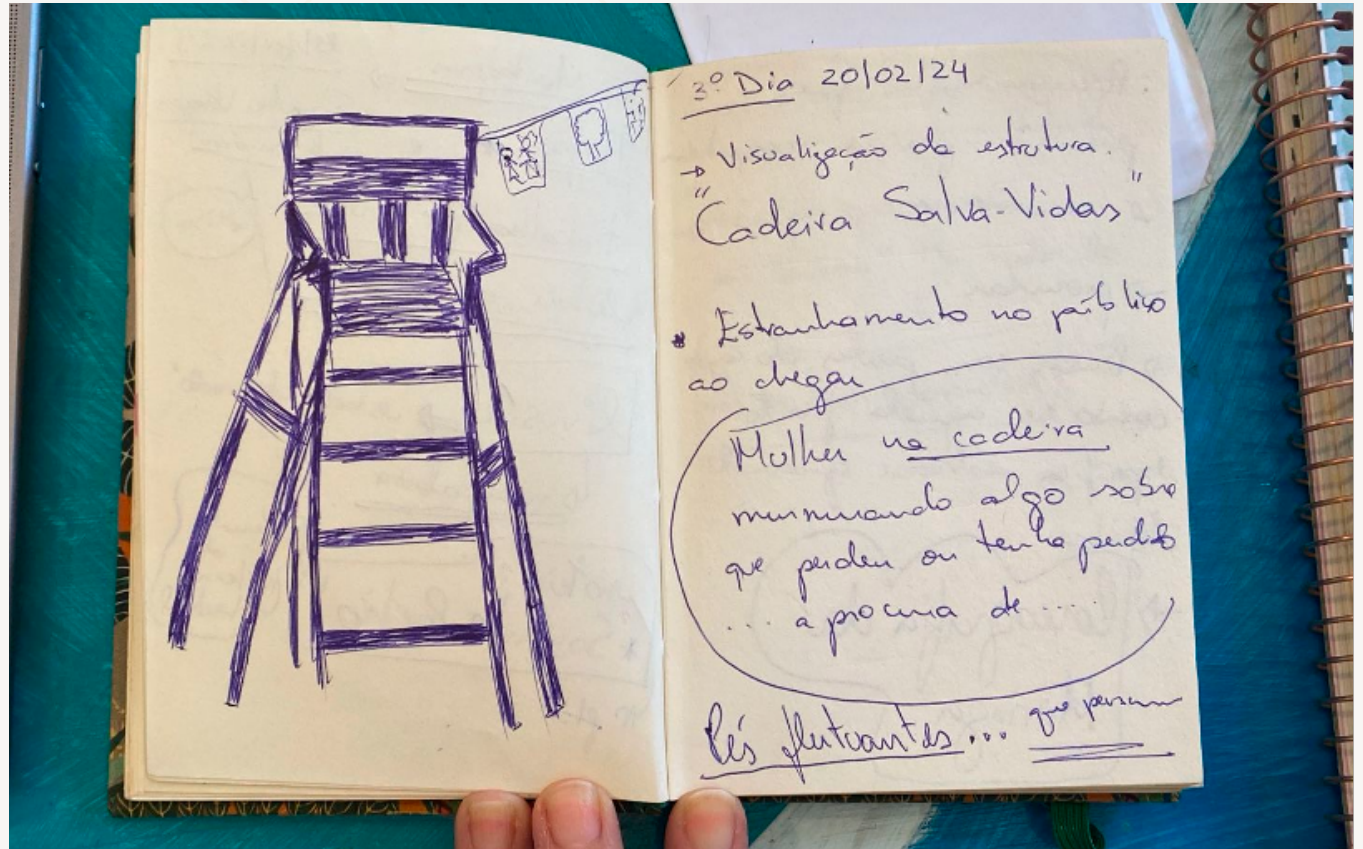 3º Dia 20/02/24
→ Visualização da estrutura.
"Cadeira Salva-Vidas"
* Estranhamento no público
ao chegar
Mulher na cadeira
murmurando algo sobre
que perdeu ou tenha perdido
... a procura de ....
Pés flutuantes... que pensam